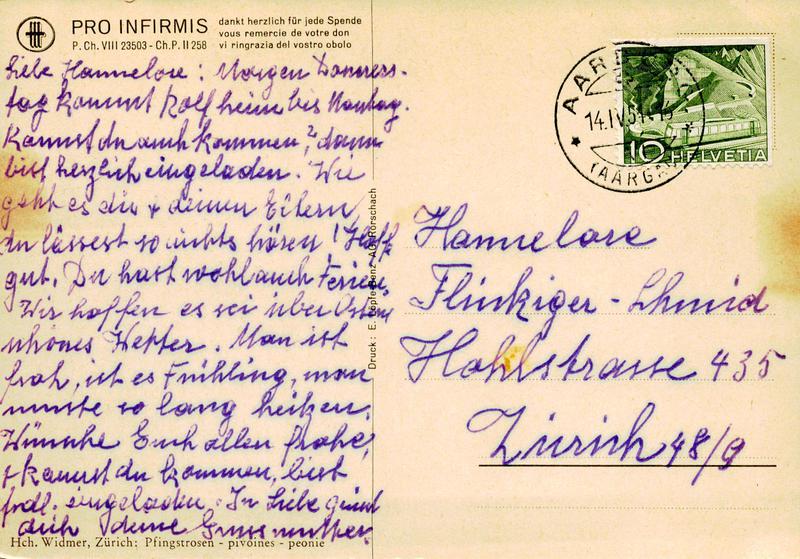 PRO INFIRMIS
P. Ch. VIII 23503 - Ch. P. II 258
dankt herzlich für jede Spende
vous remercie de votre don
vi ringrazia del vostro obolo
Liebe Hannelore: Morgen Donners-
tag kommt Rolf heim bis Montag.
Kannst du auch kommen?, dann
bist herzlich eingeladen. Wie
geht es dir + deinen Eltern,
du lässest so nichts hören! Hoff.
gut. Du hast wohl auch Ferien,
Wir hoffen es sei über Ostern
schönes Wetter. Man ist
froh, ist es Frühling, man
musste so lang heitzen.
Wünsche Euch allen frohe,
+ kannst du kommen, bist
frdl. eingeladen. In Liebe grüsst
dich deine Grossmutter.
Hch. Widmer, Zürich: Pfingstrosen - pivoines - peonie
Druck: E. Löpfe-Benz AG, Rorschach
14.IV.54.-15
(AARGAU)
10 HELVETIA
Hannelore
Flückiger-Schmid
Hohlstrasse 435
Zürich 48/9